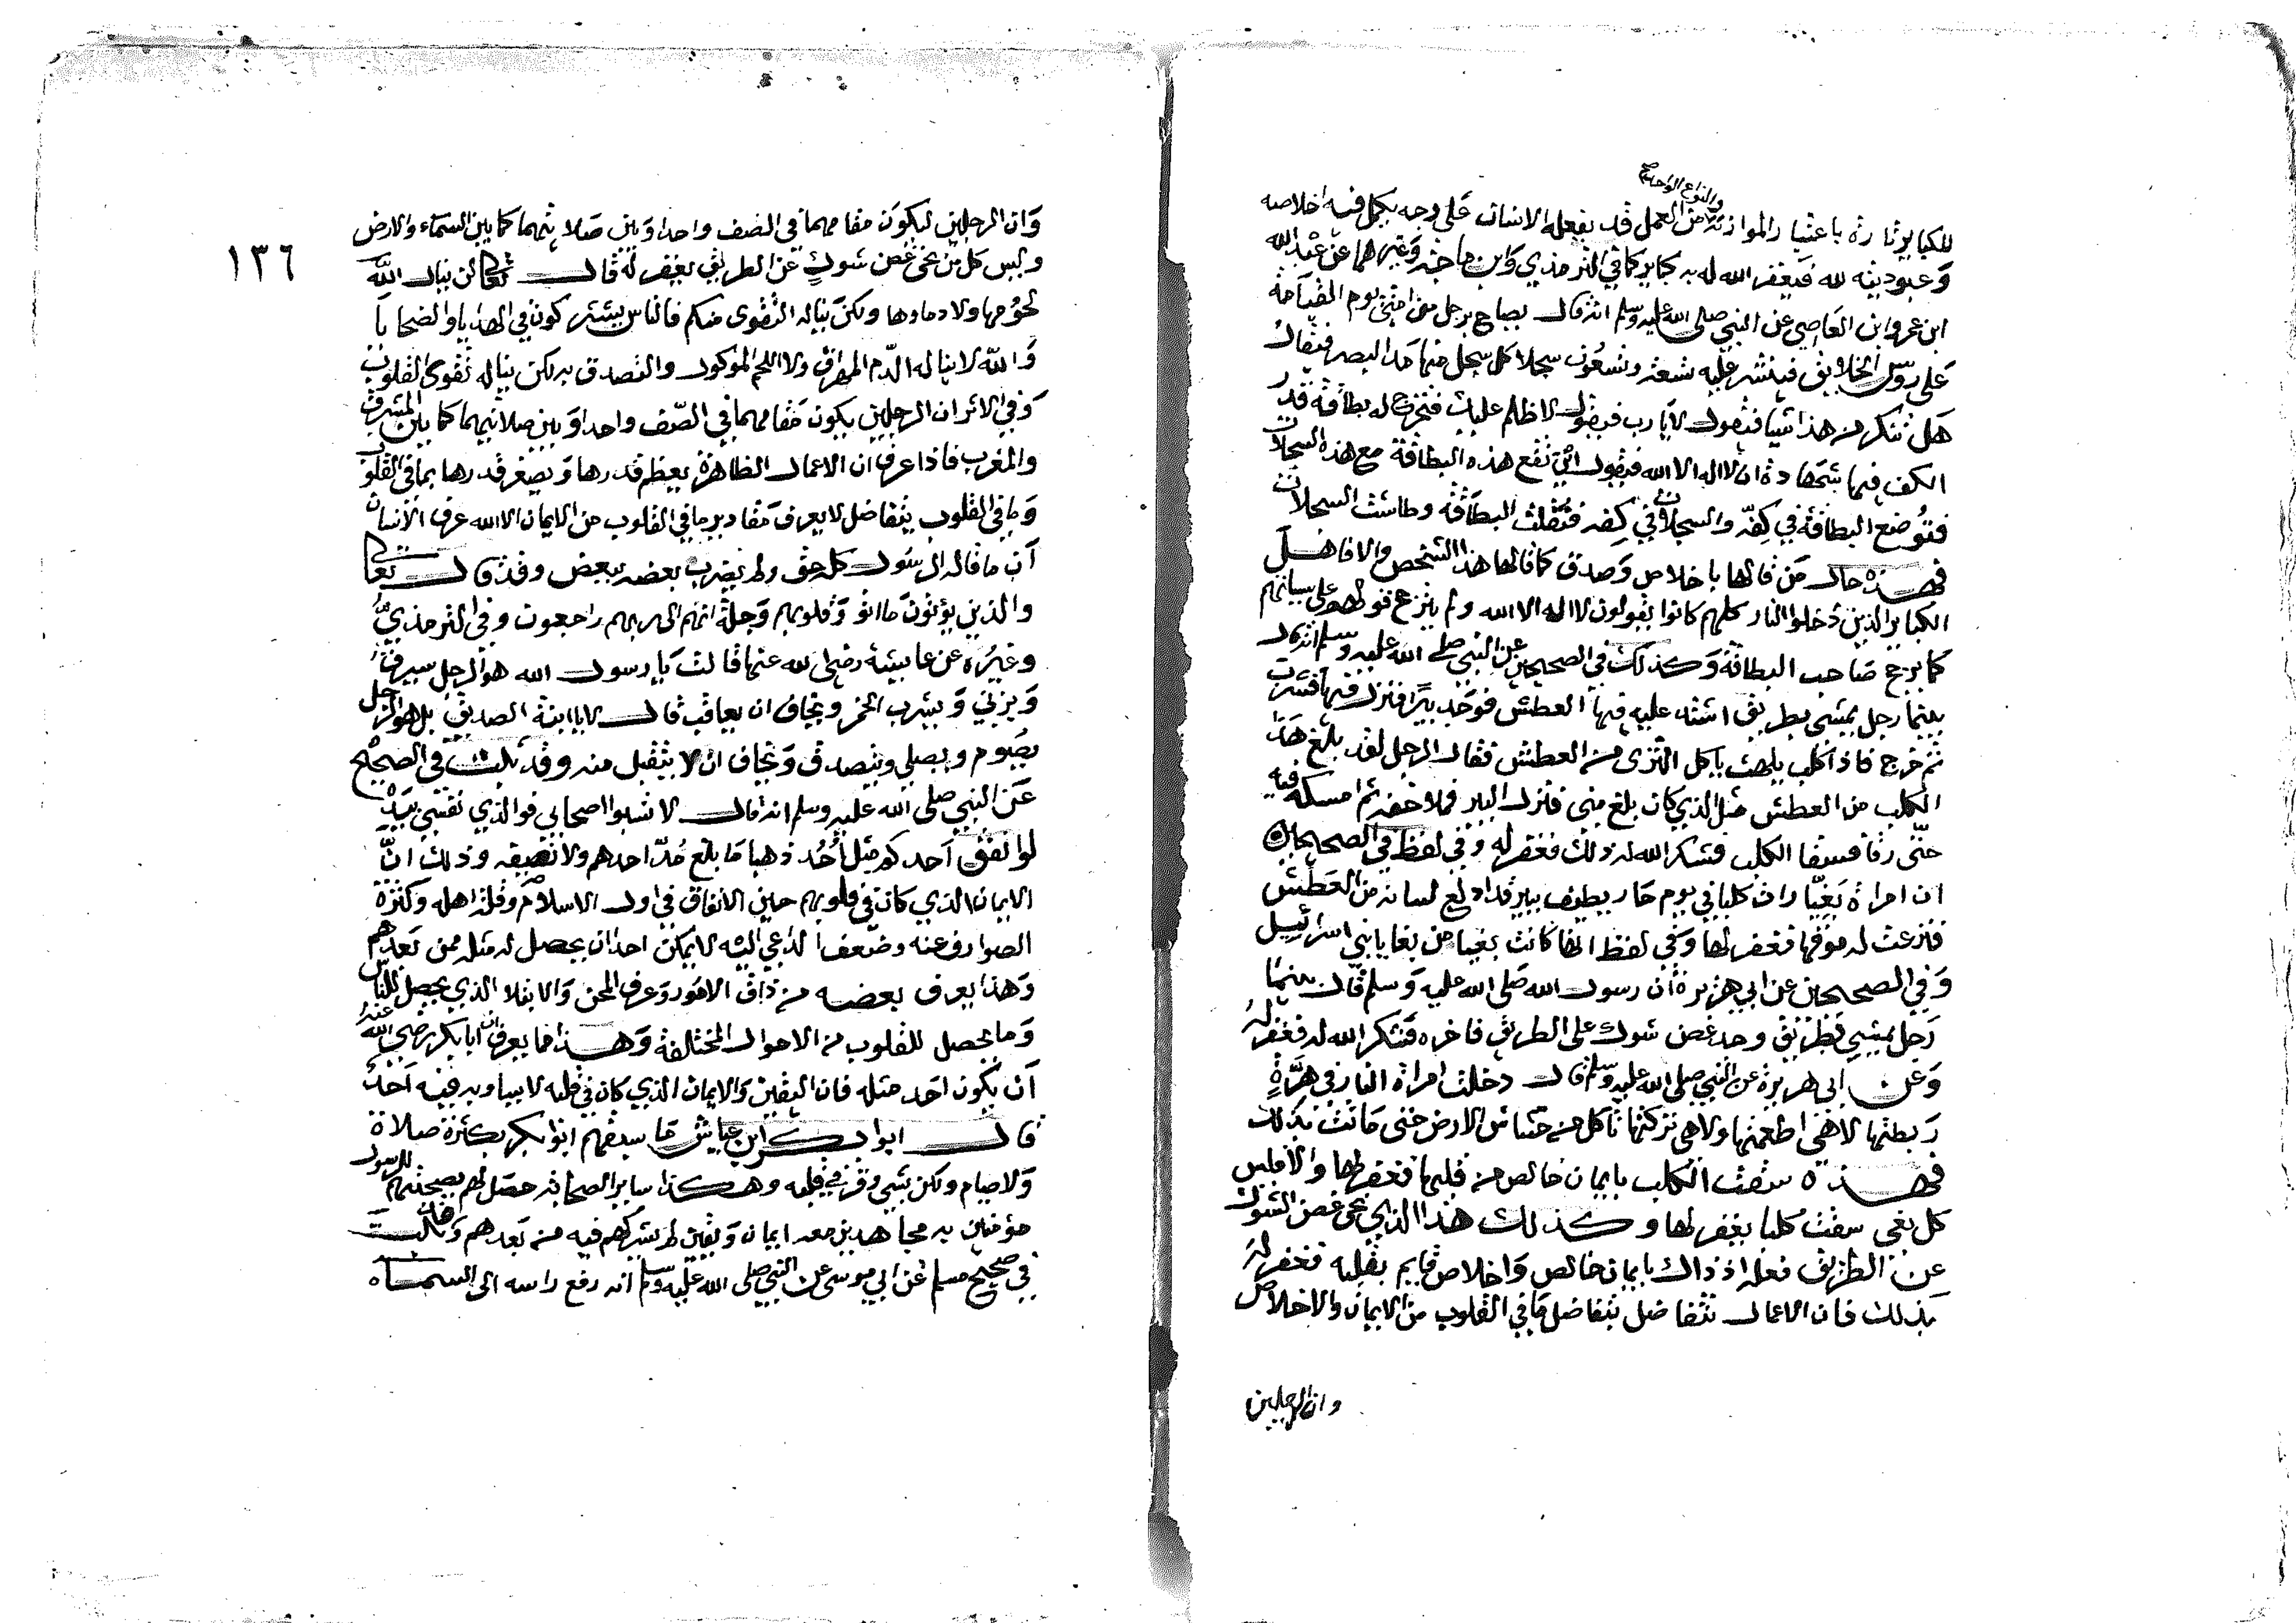 والنوع الواحد صح
للكباير تارة باعتبار الموازنة من العمل قد يفعله الانسان على وجه يكمل فيه اخلاصه
وعبوديته لله فيغفر الله له به كباير كما في الترمذي وابن ماجه وغيرهما عن عبد الله
ابن عمرو ابن العاصي عن النبي صلى الله عليه وسلم انه قال يصاح برجل من امتي يوم القيامة
على روس الخلايق فينشر عليه تسعة وتسعون سجلا كل سجل منها مد البصر فيقال
هل تنكر من هذا شيا فيقول لا يا رب فيقول لا ظلم عليك فتخرج له بطاقة قدر
الكف فيها شهادة ان لا اله الا الله فيقول اين تقع هذه البطاقة مع هذه السجلات
فتوضع البطاقة في كفة والسجلات في كفة فثقلت البطاقة وطاشت السجلات
فهذه حال من قالها باخلاص وصدق كما قالها هذا الشخص والا فاهل
الكباير الذين دخلوا النار كلهم كانوا يقولون لا اله الا الله ولم يترجح قولهم على سياتهم
كما ترجح صاحب البطاقة وكذلك في الصحيحين عن النبي صلى الله عليه وسلم انه قال
بينما رجل يمشي بطريق اشتد عليه فيها العطش فوجد بيرا فنزل فيها فشرب
ثم خرج فاذا كلب يلهث ياكل الثرى من العطش فقال الرجل لقد بلغ هذا
الكلب من العطش مثل الذي كان بلغ مني فنزل البير فملا خفه ثم امسكه فيه
حتى رقا فسقا الكلب فشكر الله له ذلك فغفر له وفي لفظ في الصحيحين
ان امراة بغيا رات كلبا في يوم حار يطيف ببير قد ادلع لسانه من العطش
فنزعت له موقها فغفر لها وفي لفظ انها كانت بغيا من بغايا بني اسرائيل
وفي الصحيحين عن ابي هريرة ان رسول الله صلى الله عليه وسلم قال بينما
رجل يمشي بطريق وجد غصن شوك على الطريق فاخره فشكر الله له فغفر له
وعن ابي هريرة عن النبي صلى الله عليه وسلم قال دخلت امراة النار في هرة
ربطتها لا هي اطعمتها ولا هي تركتها تاكل من خشاش الارض حتى ماتت بذلك
فهذه سقت الكلب بايمان خالص من قلبها فغفر لها والا فليس
كل بغي سقت كلبا يغفر لها وكذلك هذا الذي نحى غصن الشوك
عن الطريق فعله اذ ذاك بايمان خالص واخلاص قايم بقلبه فغفر له
بذلك فان الاعمال تتفاضل بتفاضل ما في القلوب من الايمان والاخلاص
وان الرجلين
١٣٦
وان الرجلين ليكون مقامهما في الصف واحدا وبين صلاتيهما كما بين السماء والارض
وليس كل من نحى غصن شوك عن الطريق يغفر له قال تعالى لن ينال الله
لحومها ولا دماوها ولكن يناله التقوى منكم فالناس يشتركون في الهدايا والضحايا
والله لا يناله الدم المهراق ولا اللحم الماكول والتصدق به لكن يناله تقوى القلوب
وفي الاثر ان الرجلين يكون مقامهما في الصف واحدا وبين صلاتيهما كما بين المشرق
والمغرب فاذا عرف ان الاعمال الظاهرة يعظم قدرها ويصغر قدرها بما في القلوب
وما في القلوب يتفاضل لا يعرف مقادير ما في القلوب من الايمان الا الله عرف الانسان
ان ما قاله الرسول كله حق ولم يضرب بعضه ببعض وقد قال تعالى
والذين يؤتون ما اتوا وقلوبهم وجلة انهم الى ربهم راجعون وفي الترمذي
وغيره عن عايشة رضي الله عنها قالت يا رسول الله هو الرجل يسرق
ويزني ويشرب الخمر ويخاف ان يعاقب قال لا يا ابنة الصديق بل هو الرجل
يصوم ويصلي ويتصدق ويخاف ان لا يتقبل منه وقد ثبت في الصحيح
عن النبي صلى الله عليه وسلم انه قال لا تسبوا اصحابي فوالذي نفسي بيده
لو انفق احدكم مثل احد ذهبا ما بلغ مد احدهم ولا نصيفه وذلك ان
الايمان الذي كان في قلوبهم حين الانفاق في اول الاسلام وقلة اهله وكثرة
الصوارف عنه وضعف الداعي اليه لا يمكن احدا ان يحصل له مثله ممن بعدهم
وهذا يعرف بعضه من ذاق الامور وعرف المحن والابتلا الذي يحصل للناس
وما يحصل للقلوب من الاحوال المختلفة وهذا مما يعرف ان ابا بكر رضي الله عنه
ان يكون احد مثله فان اليقين والايمان الذي كان في قلبه لا يساويه فيه احد
قال ابو بكر ابن عياش ما سبقهم ابو بكر بكثرة صلاة
ولا صيام ولكن بشي وقر في قلبه وهكذا ساير الصحابة حصل لهم بصحبتهم للرسول
مؤمنين به مجاهدين معه ايمان ويقين لم يشركهم فيه من بعدهم
في صحيح مسلم عن ابي موسى عن النبي صلى الله عليه وسلم انه رفع راسه الى السماء